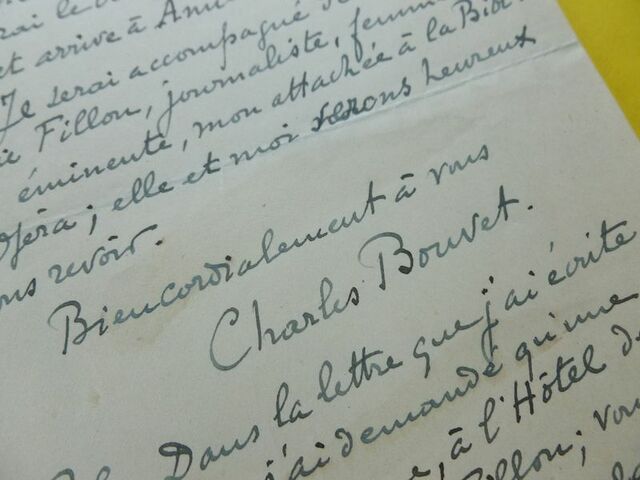 rai le
et arrive à
Je serai accompagné de
Fillon, journaliste, femme
éminente, mon attachée à la Bibl.
Opéra; elle et moi serons heureux
revoir.
Bien cordialement à vous
Charles Bouvet.
Dans la lettre que j'ai écrite
j'ai demandé qu'une
, à l'Hôtel de
Fillon; vou